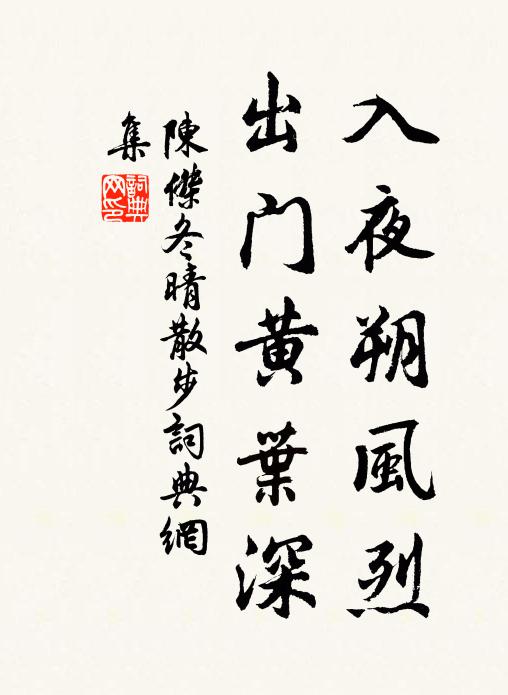 入夜朔風烈
出門黃葉深
陳傑冬晴散步詞典網
集
詞典網印